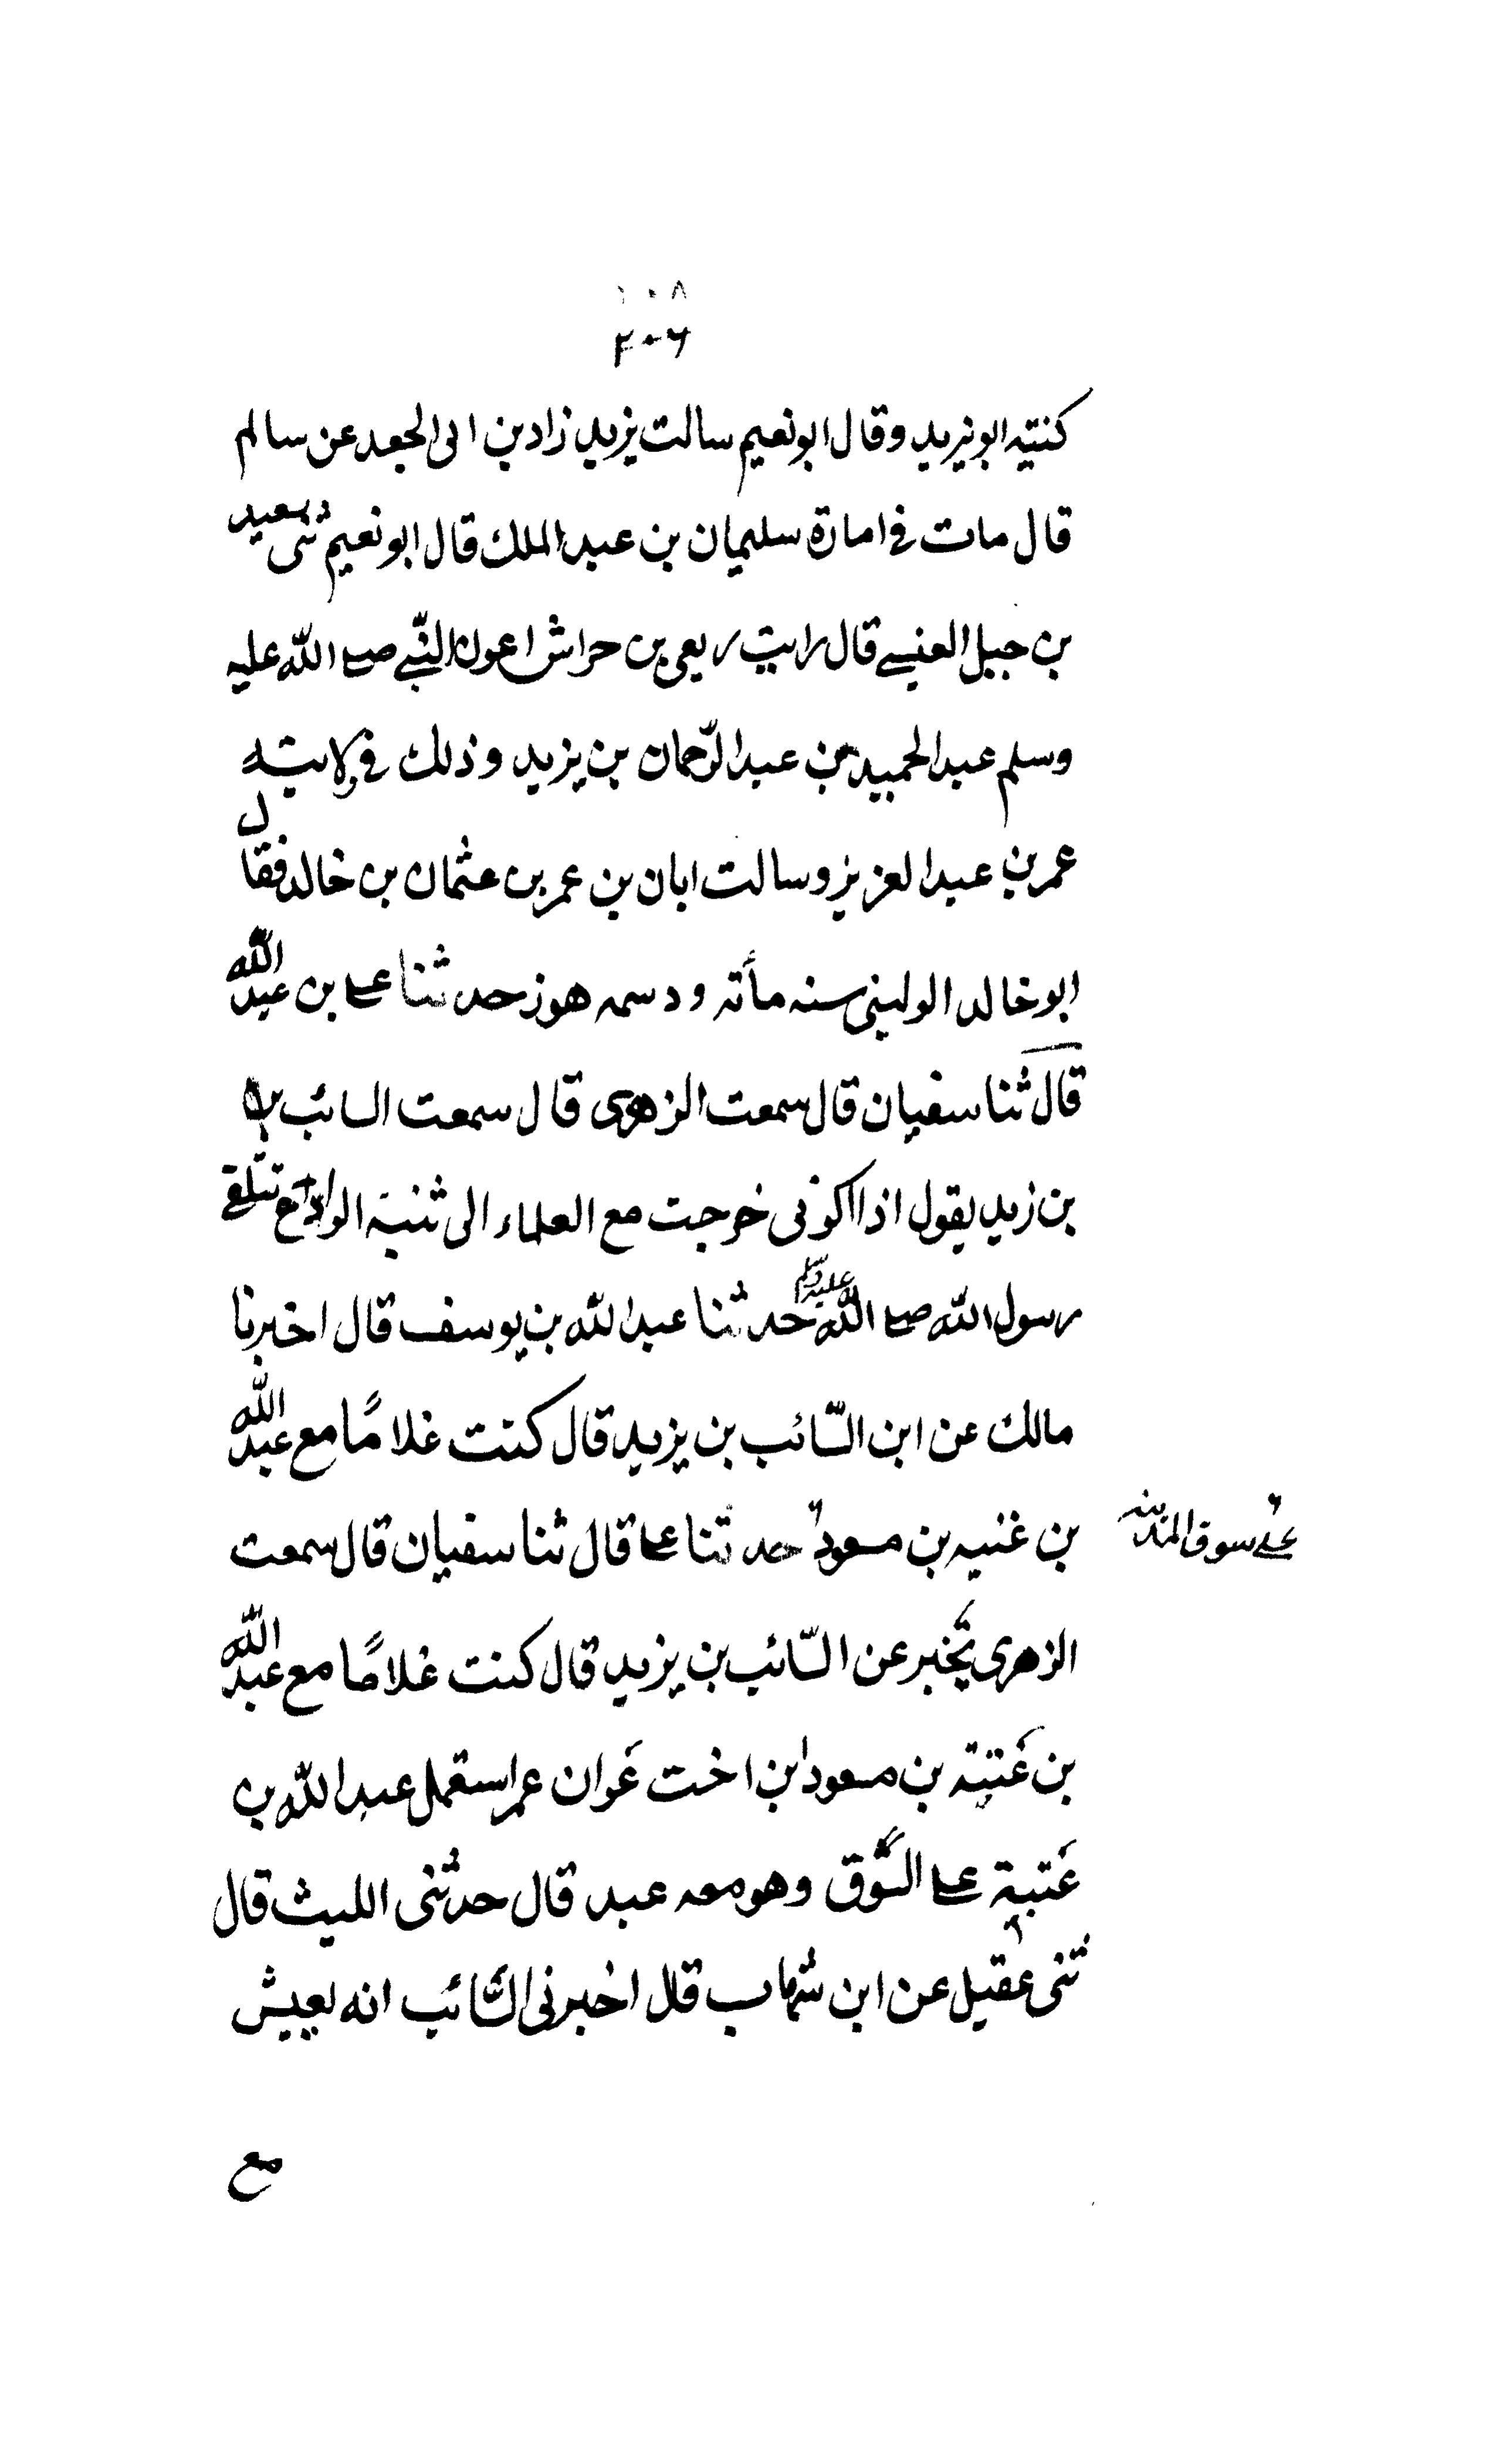 ١٠٨
٢٠٦
كنتيه ابو يزيد وقال ابو نعيم سالت يزيد زاد بن ابى الجعد عن سالم
قال مات فى امارة سليمان بن عبد الملك قال ابو نعيم ثنى سعيد
بن جبل العنسے قال رايت ربعى بن حراش اعوان النبے صلے الله عليه
وسلم عبد الحميد بن عبد الرحمان بن يزيد وذلك فى ولايته
عمر بن عبد العزيز وسالت ابان بن عمر بن عثمان بن خالد فقال
ابو خالد الوليبى سنه مأته ودسمه هوز حدثنا على بن عبد الله
قال ثنا سفيان قال سمعت الزهرى قال سمعت السائب
بن زيد يقول اذا اكونى خرجت مع العلماء الى ثنية الوادع نتلقے
رسول الله صلے الله عليه وسلم حدثنا عبد الله بن يوسف قال اخبرنا
مالك عن ابن السّائب بن يزيد قال كنت غلامًا مع عبد الله
بن غنبه بن مسعود حدثنا على قال ثنا سفيان قال سمعت
علے سوق المدينه
الزهرى يخبر عن السّائب بن يزيد قال كنت غلامًا مع عبد الله
بن عَتبة بن مسعود ابن اخت عَوان عمر استعمل عبد الله بن
عَتبة على السُّوق وهو معه عبد قال حدثنى الليث قال
ثنى عقيل عن ابن شهاب قال اخبرنى السّائب انه يعيش
مع